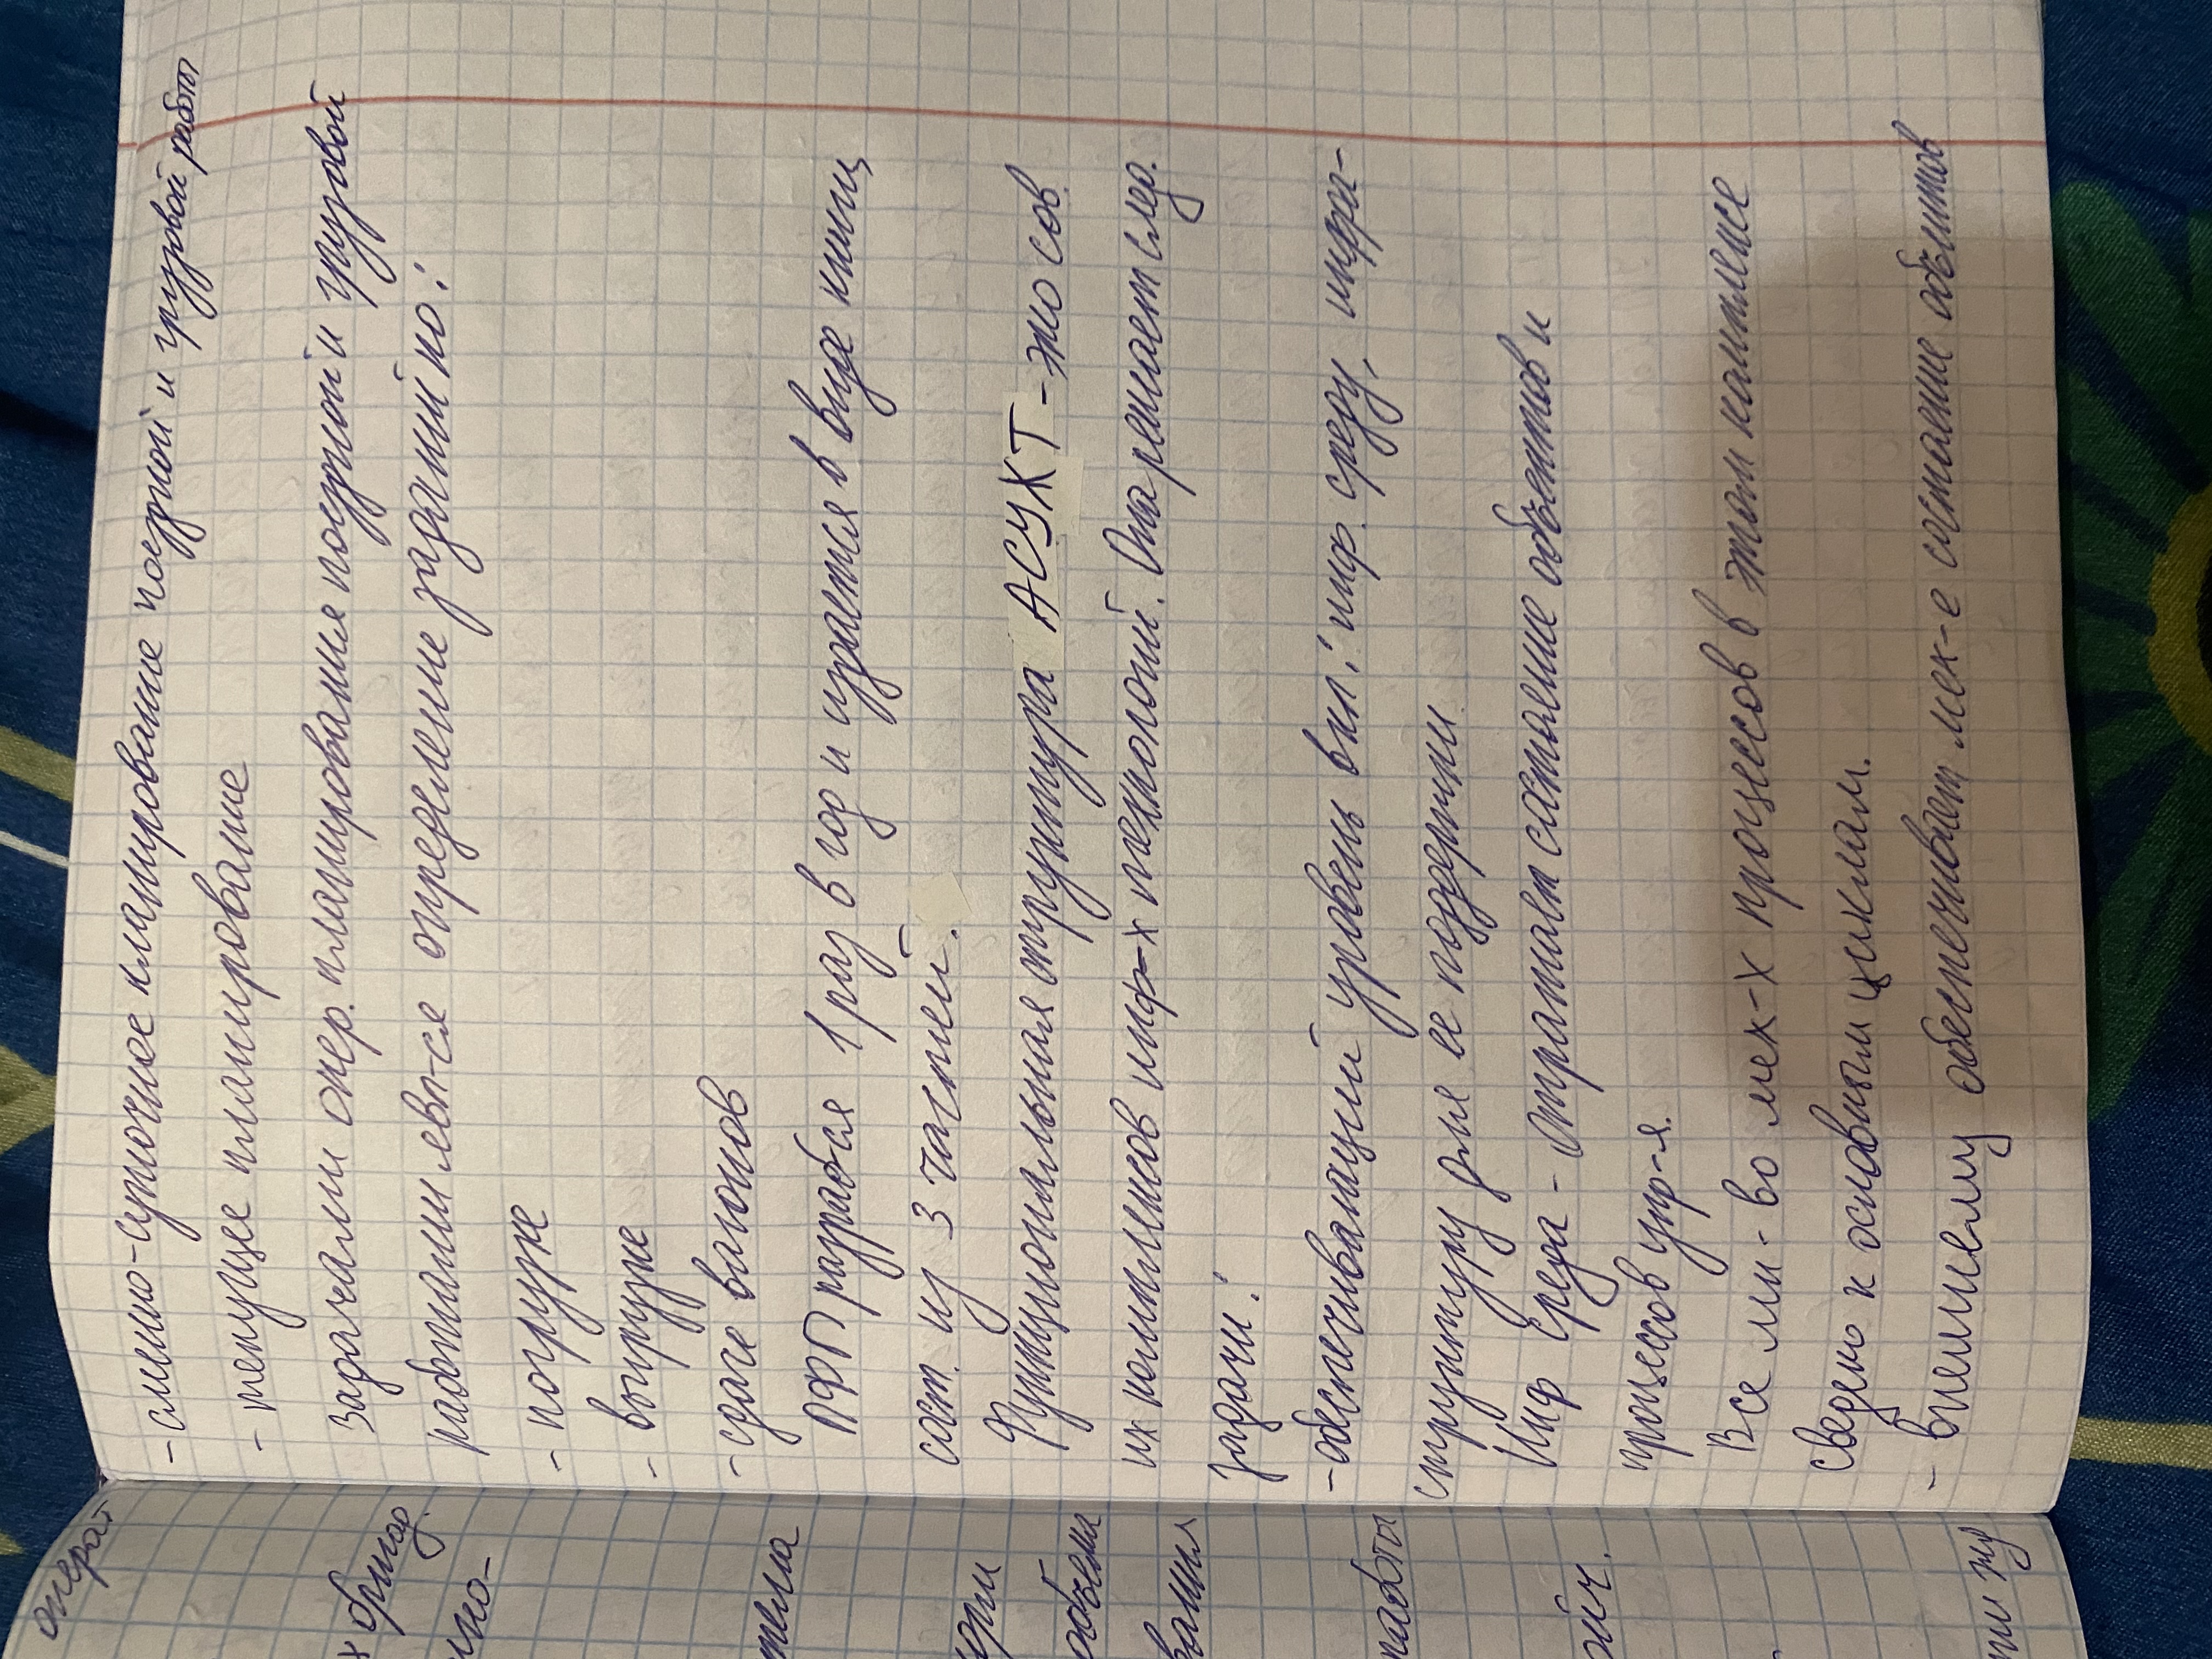 - сменно-суточное планирование поездной и грузовой работы
- текущее планирование
Задачами опер. планирования поездной и грузовой
работами явл-ся определение заданий по:
- погрузке
- выгрузке
- сдаче вагонов
ПФП разраб-ся 1 раз в год и издается в виде книг,
сост. из 3 частей.
Функциональная структура АСУЖТ - это сов.
их комплексов инф-х технологий. Она решает след.
задачи:
- обеспечивающий уровень вкл: инф. среду, инфра-
структуру для ее поддержки
Инф Среда - отражает состояние объектов и
процессов упр-я.
Все мн-во тех-х процессов в этом комплексе
сведено к основным циклам.
- внешнему обеспечивает состояние объектов
операт
бригад.
объема
вания
работы